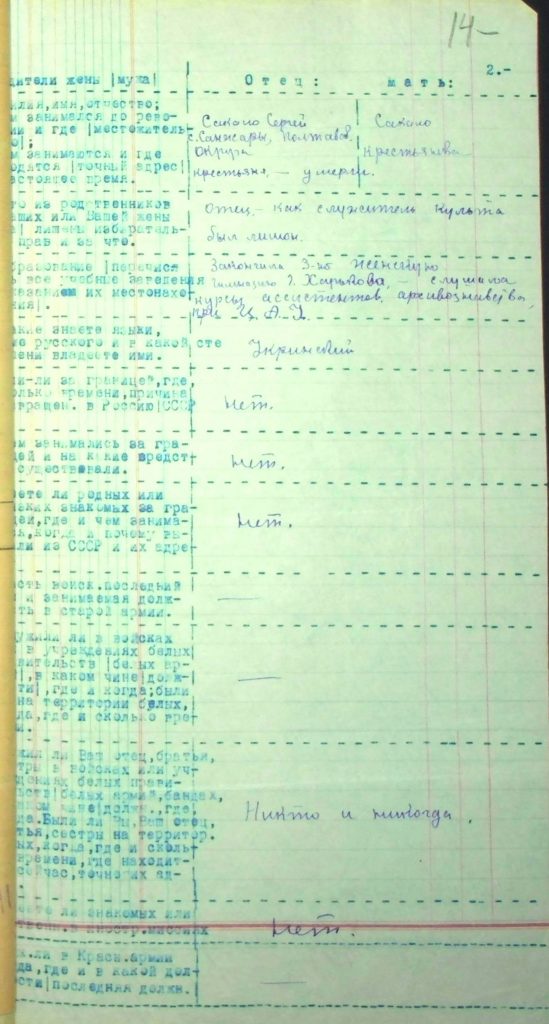 14-
2.-
дители жены |мужа| Отец: мать:
илия,имя,отчество;
м занимался до рево-
ии и где |местожитель-
о|;
ем занимаются и где
одятся |точный адрес|
астоящее время.
Сакало Сергей
с. Санжары, Полтавов.
Округа
крестьяне, — умерли.
Сакало
крестьянка
то из родственников
аших или Вашей жены
а| лишены избиратель-
прав и за что.
Отец, — как служитель культа
был лишон.
бразование |перечисл
ь все учебные заведения
казанием их местонахо-
ния|.
Закончила 3-ю женскую
гимназию г. Харькова, — слушала
курсы ассистентов, архивознавства,
при Ц. А. У.
акие знаете языки,
ме русского и в какой сте
пени владеете ими.
Укринский
ли-ли за границей,где,
олько времени,причина
вращен. в Россию|СССР
Нет.
ем занимались за гра-
цей и на какие средст-
существовали.
Нет.
еете ли родных или
зких знакомых за гра-
цей,где и чем занима-
сь,когда и почему вы-
али из СССР и их адре-
Нет.
ость войск.последний
и занимаемая долж-
ть в старой армии.
—
ужили ли в войсках
в учреждениях белых
вительств |белых ар-
|,в каком чине|долж-
ти|,где и когда;были
на территории белых,
да,где и сколько вре-
и.
—
жил ли Ваш отец,братья,
тры в войсках или уч-
дениях белых прави-
ьств|белых армий,бандах,
аком чине|должн.,где,
да.Были ли Вы,Ваш отец,
тья,сестры на территор.
ых,когда,где и сколь-
времени,где находит-
сейчас,точно их ад-
Никто и никогда.
еете ли знакомых или
ственн.в иностр.миссиях
Нет.
ж.ли в Красн.армии
да,где и в какой дол-
ости|последняя должн.
—